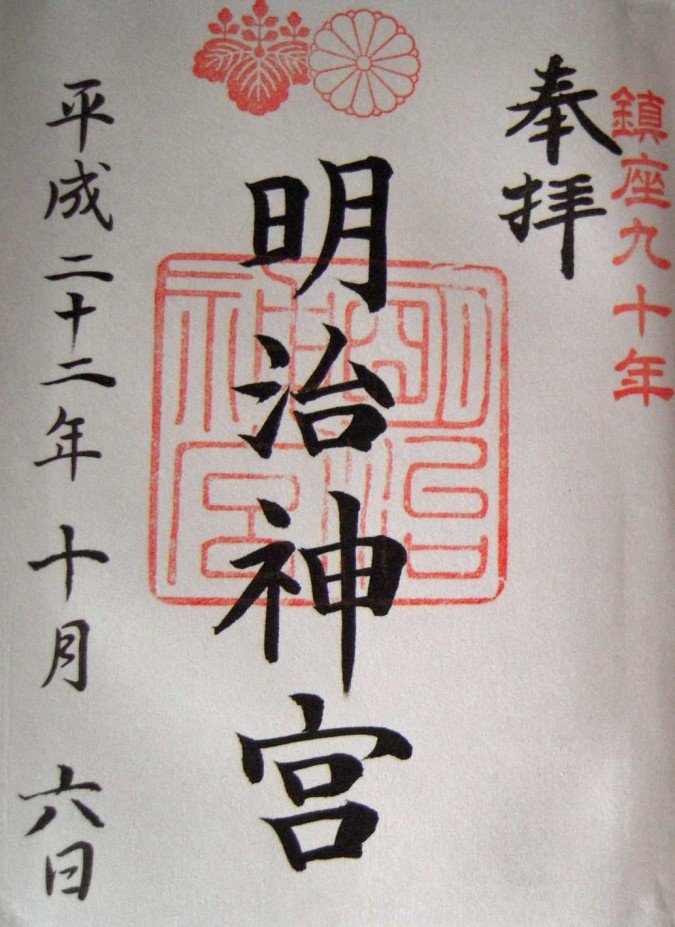 鎮座九十年
奉拝
明治神宮
明治神宮
平成二十二年十月六日